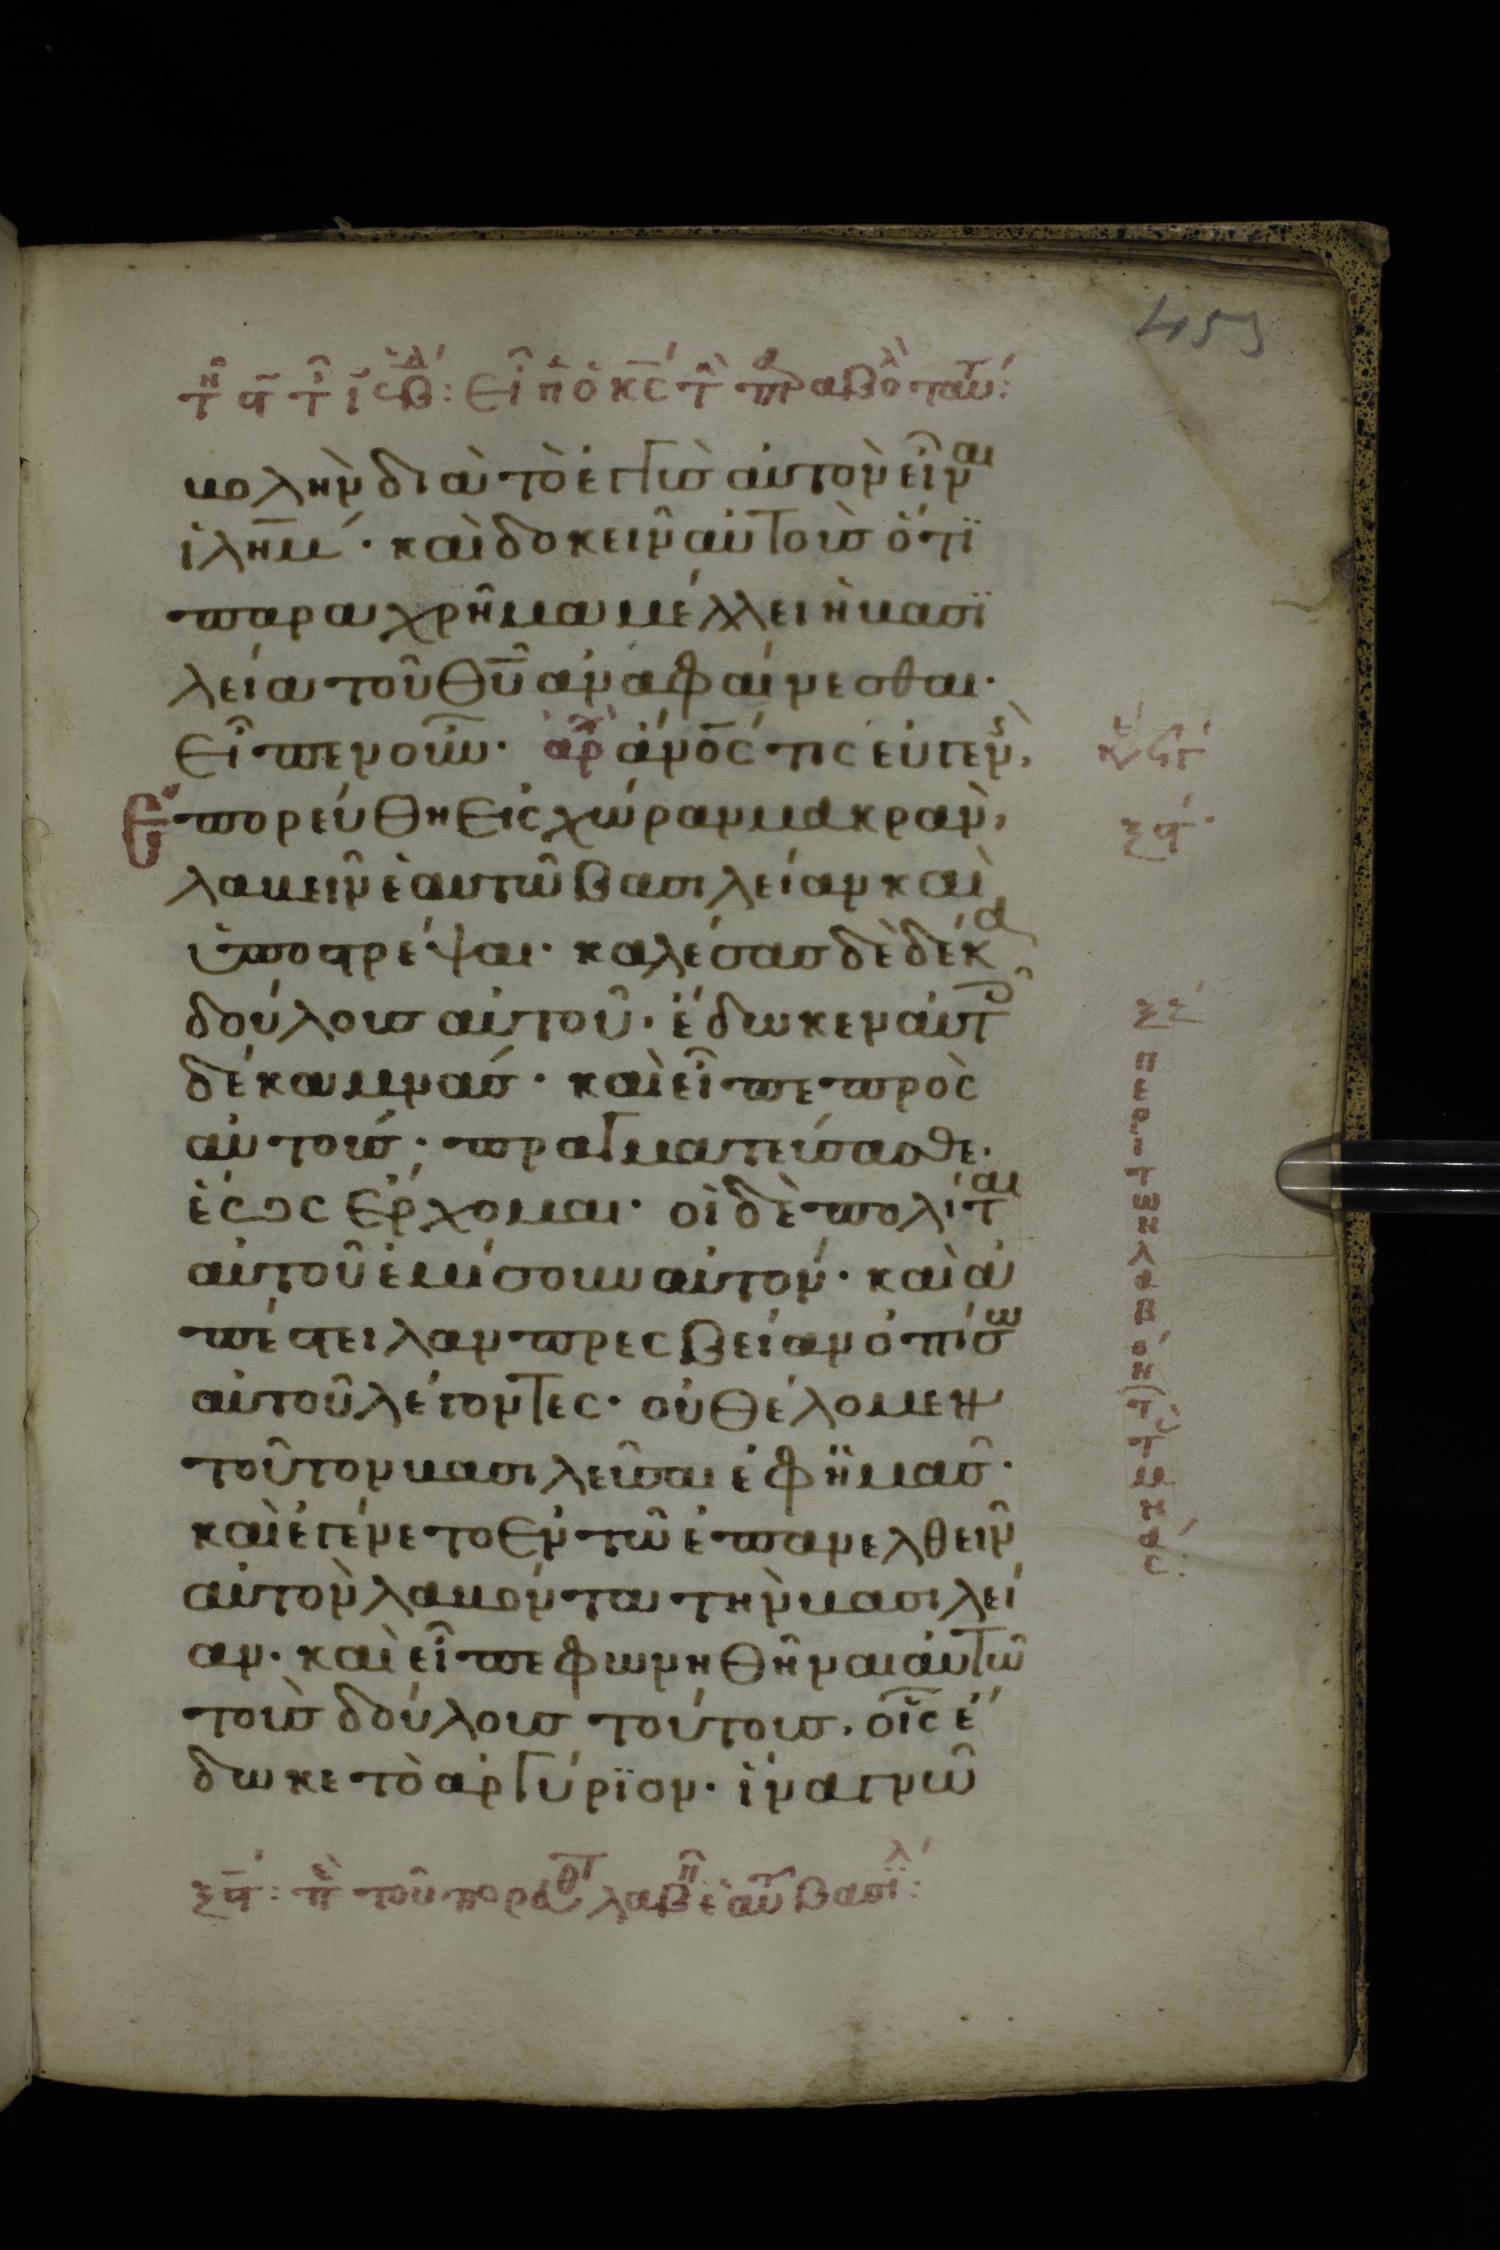 453
βολὴν διὰ τὸ ἐγγὺς αὐτὸν εἶναι
ἰλῆμ· καὶ δοκεῖν αὐτοὺς ὅτι
παραχρῆμα μέλλει ἡ βασι
λεία τοῦ θῦ ἀναφαίνεσθαι·
Εἶπεν οὖν· ἀρχ ἄνος τις εὐγενὴς,
ἐπορεύθη εἰς χώραν μακρὰν,
λαβεῖν ἑαυτῶ βασιλείαν καὶ
ὑποστρέψαι· καλέσας δὲ δέκα
δούλους αὐτοῦ· ἔδωκεν αὐτοῖς
δέκα μνᾶς· καὶ εἶπε πρὸς
αὐτούς· πραγματεύσασθε·
ἕως ἔρχομαι· οἱ δὲ πολίται
αὐτοῦ ἐμίσουν αὐτόν· καὶ ἀ
πέστειλαν πρεσβείαν ὀπίσω
αὐτοῦ λέγοντες· οὐ θέλομεν
τοῦτον βασιλεῦσαι ἐφ ἡμᾶς·
καὶ ἐγένετο ἐν τῶ ἐπανελθεῖν
αὐτὸν λαβόντα τὴν βασιλεί
αν· καὶ εἶπε φωνηθῆναι αὐτῶ
τοὺς δούλους τούτους, οἷς ἔ
δωκε τὸ ἀργύριον· ἵνα γνῶ
ξϛ
περι των λαβόν τ τ μνάς.